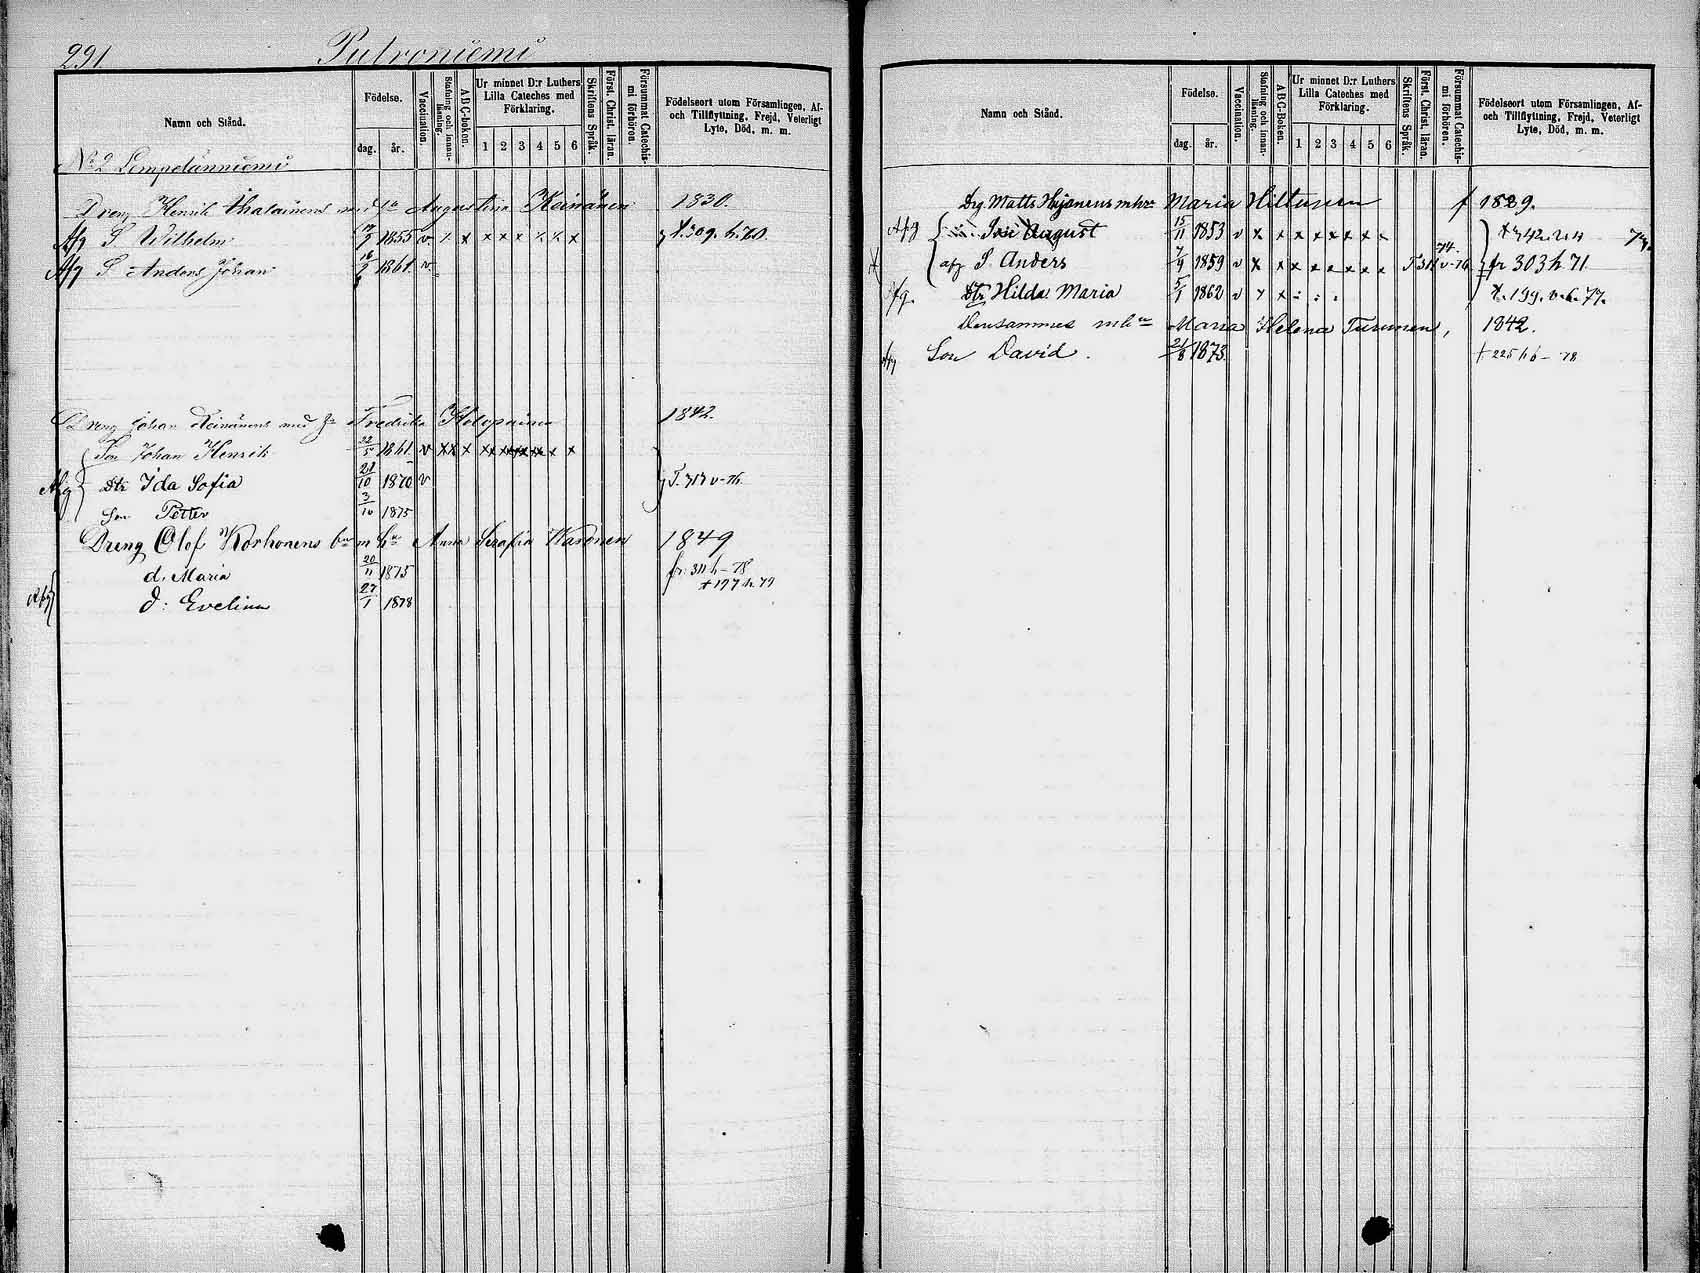 291.
Putroniemi
Namn och Stånd.
Födelse.
dag.
år.
Vaccination.
Stafning och innanläsning.
ABC-boken.
Ur minnet D:r Luthers Lilla Cateches med Förklaring.
1 2 3 4 5 6
Skriftens Språk.
Först. Christ. läran.
Försummat Catechismi förhören.
Födelseort utom Församlingen, Af- och Tillflyttning, Frejd, Veterligt Lyte, Död, m. m.
No 2 Lempelänniemi
Dreng Henrik Augustina Keinänen 1830.
Afg S. Wilhelm 1855 v x x x x x x x x
Afg S. Anders Johan 1861 v
Dreng Johan Keinänens med Fredrika 1842.
Son Johan Henrik 22/5 1861 v x x x x x x x x x
Afg Dtr Ida Sofia 21/10 1870 v
Son Petter 3/10 1875
Dreng Olof Korhonens m hu Anna Serafia Karonen 1849
d. Maria 20/11 1875 fr. 311 h - 78
d: Evelina 27/1 1878
Namn och Stånd.
Födelse.
dag.
år.
Vaccination.
Stafning och innanläsning.
ABC-boken.
Ur minnet D:r Luthers Lilla Cateches med Förklaring.
1 2 3 4 5 6
Skriftens Språk.
Först. Christ. läran.
Försummat Catechismi förhören.
Födelseort utom Församlingen, Af- och Tillflyttning, Frejd, Veterligt Lyte, Död, m. m.
Drg. Matts mhu Maria Hiltunen 1829.
Afg August 15/11 1853 v x x x x x x x
afg S. Anders 7/9 1859 v x x x x x x x 74 fr 303 h 71
Dtr Hilda Maria 5/1 1862 v 199. 77.
Densammes mhu Maria Helena Turunen, 1842.
Son David. 21/8 1873. 225 h - 78